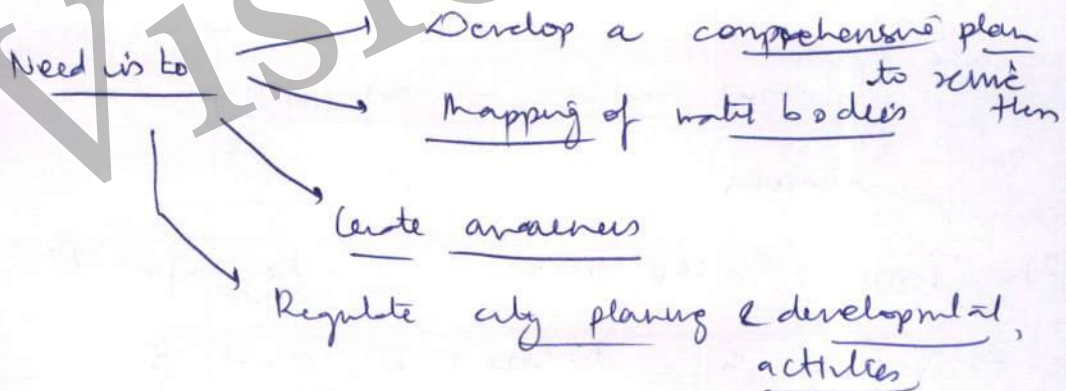 Need is to
Develop a comprehensive plan
to revive them
Mapping of water bodies
Create awareness
Regulate city planning & developmental
activities
Visi